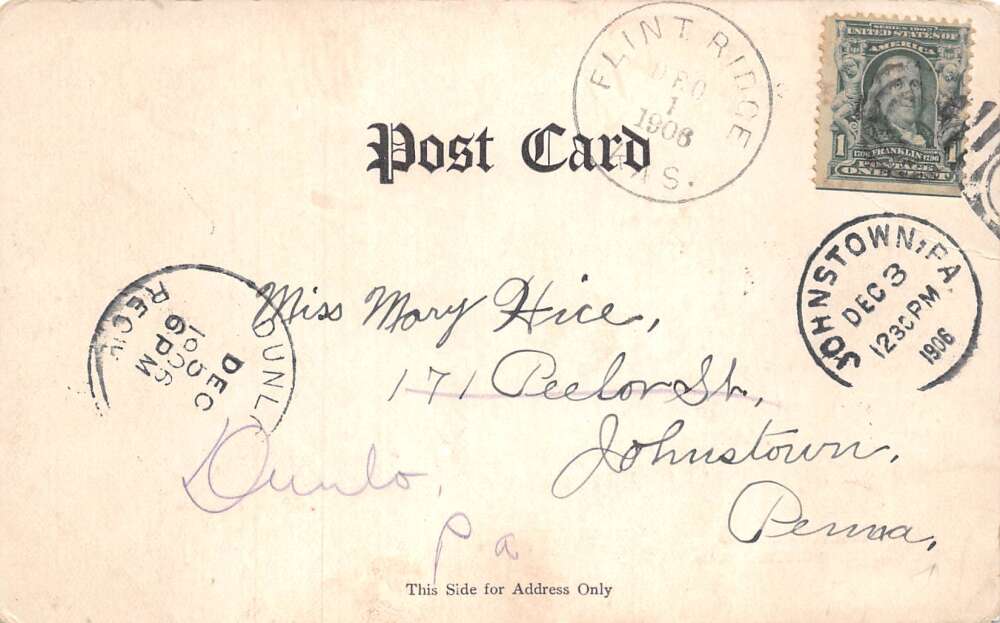 FLINT RIDGE
DEC
1
1906
KAS.
SERIES 1902
UNITED STATES OF
AMERICA
1 1706 FRANKLIN 1790 1
POSTAGE
ONE CENT
Post Card
JOHNSTOWN, PA.
DEC 3
1230PM
1906
DUNLO
DEC
6 PM
REC'D
Miss Mary Hice,
171 Peelor St,
Johnstown,
Penna,
Dunlo,
Pa
This Side for Address Only